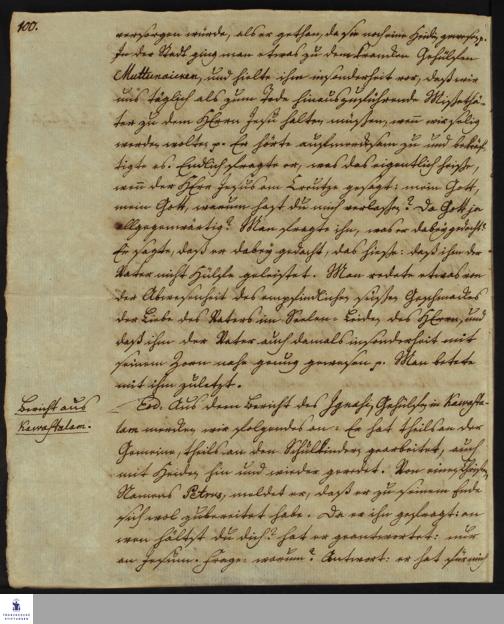 100.
versorgen würde, als er gethan, da sie noch eine Heidin gewesen p.
In der Stadt ging man etwas zu dem kranken Gehülfen
Muttunaicken, und hielte ihm insonderheit vor, daß wir
uns täglich als zum Tode hinauszuführende Missethä-
ter zu dem HErrn Jesu halten müssen, wenn wir selig
werden wolten p. Er hörte aufmercksam zu und bekräf-
tigte es. Endlich fragte er, was das eigentlich heisse,
wenn der HErr Jesus am Creutze gesagt: mein Gott,
mein Gott, warum hast du mich verlassen? Da Gott ja
allgegenwärtig? Man fragte ihn, was er dabey gedacht?
Er sagte, daß er dabey gedacht, das hiesse: daß ihm der
Vater nicht Hülfe geleistet. Man redete etwas von
der Abwesenheit des empfindlichen süssen Geschmackes
der Liebe des Vaters im Seelen-Leiden des HErrn, und
daß ihm der Vater auch damals insonderheit mit
seinem Zorn nahe genug gewesen p. Man betete
mit ihm zuletzt.
Bericht aus
Kawastalam.
Eod. Aus dem Bericht des Ignasi, Gehülfen in Kawasta-
lam mercken wir folgendes an: Er hat theils an der
Gemeine, theils an den Schulkindern gearbeitet, auch
mit Heiden hin und wieder geredet. Von einem Christen,
Namens Petrus, meldet er, daß er zu seinem Ende
sich wol zubereitet habe. Da er ihn gefragt: an
wen hältst du dich? hat er geantwortet: nur
an Jesum. Frage: warum? Antwort: er hat für mich
FRANCKESCHE
STIFTUNGEN